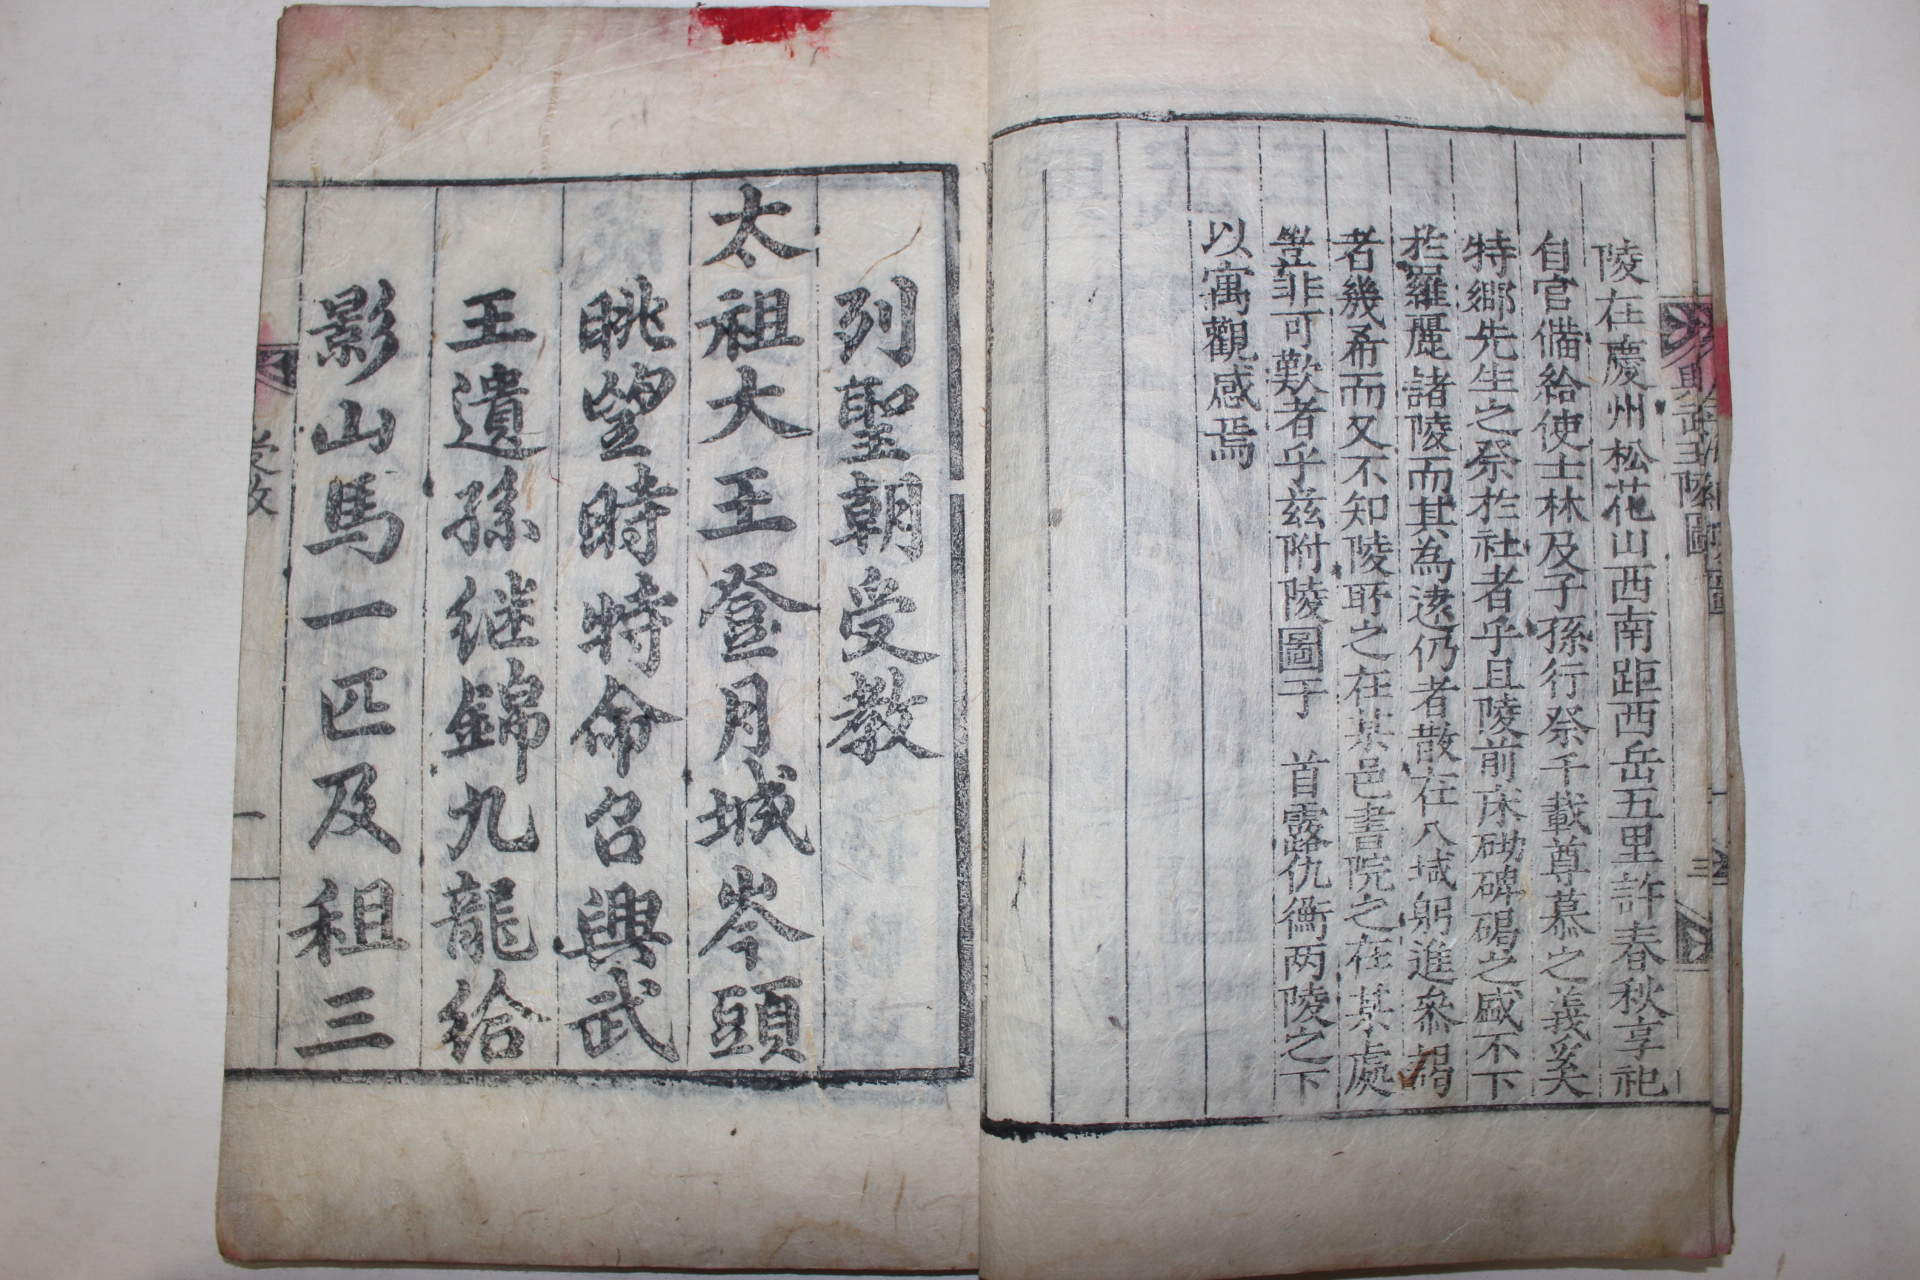 陵在慶州松花山西南距西岳五里許春秋享祀
自官備給使士林及子孫行祭千載尊慕之義奚
特鄉先生之祭於社者乎且陵前床砌碑碣之盛不下
於羅麗諸陵而其為遠仍者散在八域躬進參謁
者幾希而又不知陵所之在某邑書院之在某處
豈非可歎者乎玆附陵圖于 首露仇衡两陵之下
以寓觀感焉
興武王陵圖
三
列聖朝受教
太祖大王登月城岑頭
眺望時特命召興武
王遺孫继錦九龍給
影山馬一匹及租三
受教
一